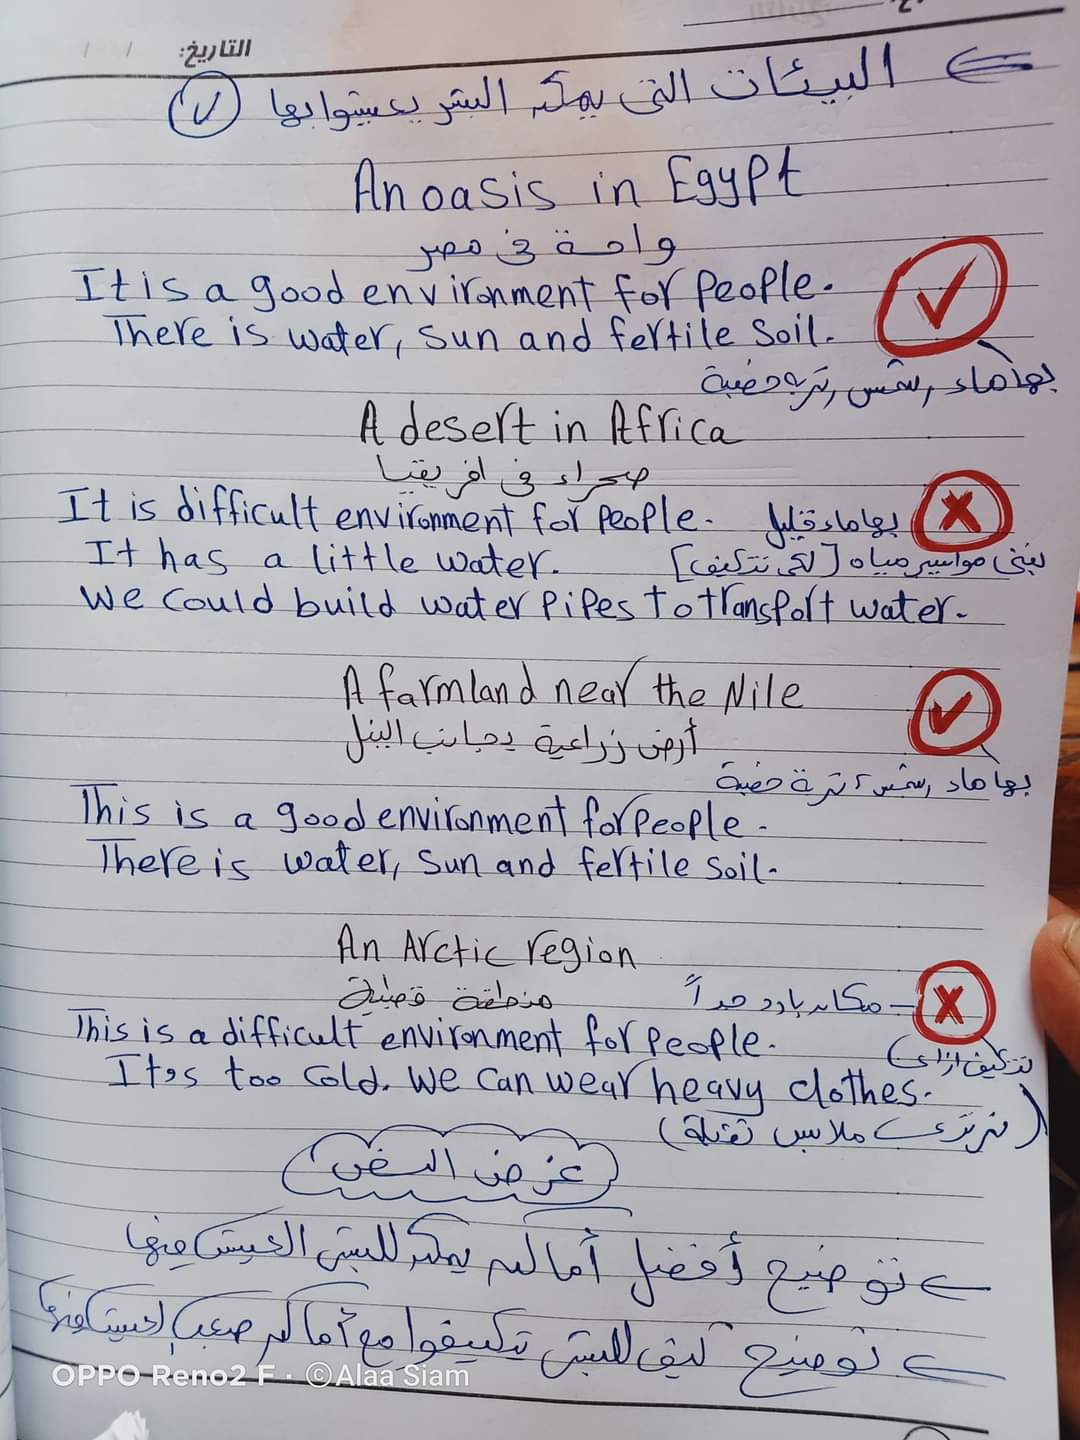 التاريخ: / /
البيئات التى يمكن البشر يعيشوا بها
An oasis in Egypt
واحة فى مصر
It is a good environment for people.
There is water, sun and fertile soil.
بها ماء, شمس, تربة خصبة
A desert in Africa
صحراء فى افريقيا
It is difficult environment for people.
بها ماء قليل
It has a little water.
نبنى مواسير مياه [لكى نتكيف]
We could build water pipes to transport water.
A farmland near the Nile
أرض زراعية بجانب النيل
بها ماء, شمس, تربة خصبة
This is a good environment for people.
There is water, sun and fertile soil.
An Arctic region
منطقة قطبية
مكان بارد جداً
This is a difficult environment for people.
نتكيف ازاى
It's too cold. We can wear heavy clothes.
(نرتدى ملابس ثقيلة)
غرض النص
توضيح أفضل أماكن يمكن للبشر العيش فيها
توضيح كيف للبشر يتكيفوا مع أماكن صعب العيش فيها
OPPO Reno2 F · ©Alaa Siam